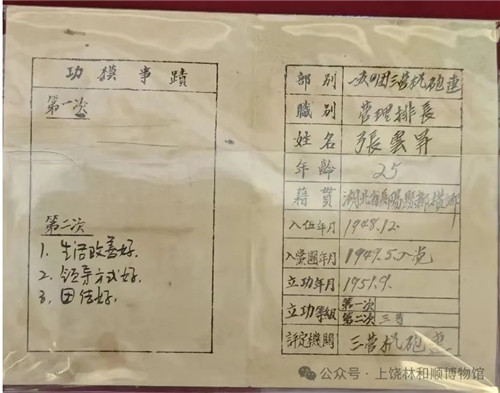 功模事蹟
第一次
第二次
1. 生活改善好.
2. 领导方式好.
3. 团结好.
部别 团三营机砲连
職别 管理排長
姓名 張雲昇
年齡 25
籍贯 湖北省 陽縣 鄉
入伍年月 1948.12.
入党团年月 1949.5入党
立功年月 1951.9.
立功等級 第一次
第二次 三等
評定機關 三营机砲连
公众号·上饶林和顺博物馆